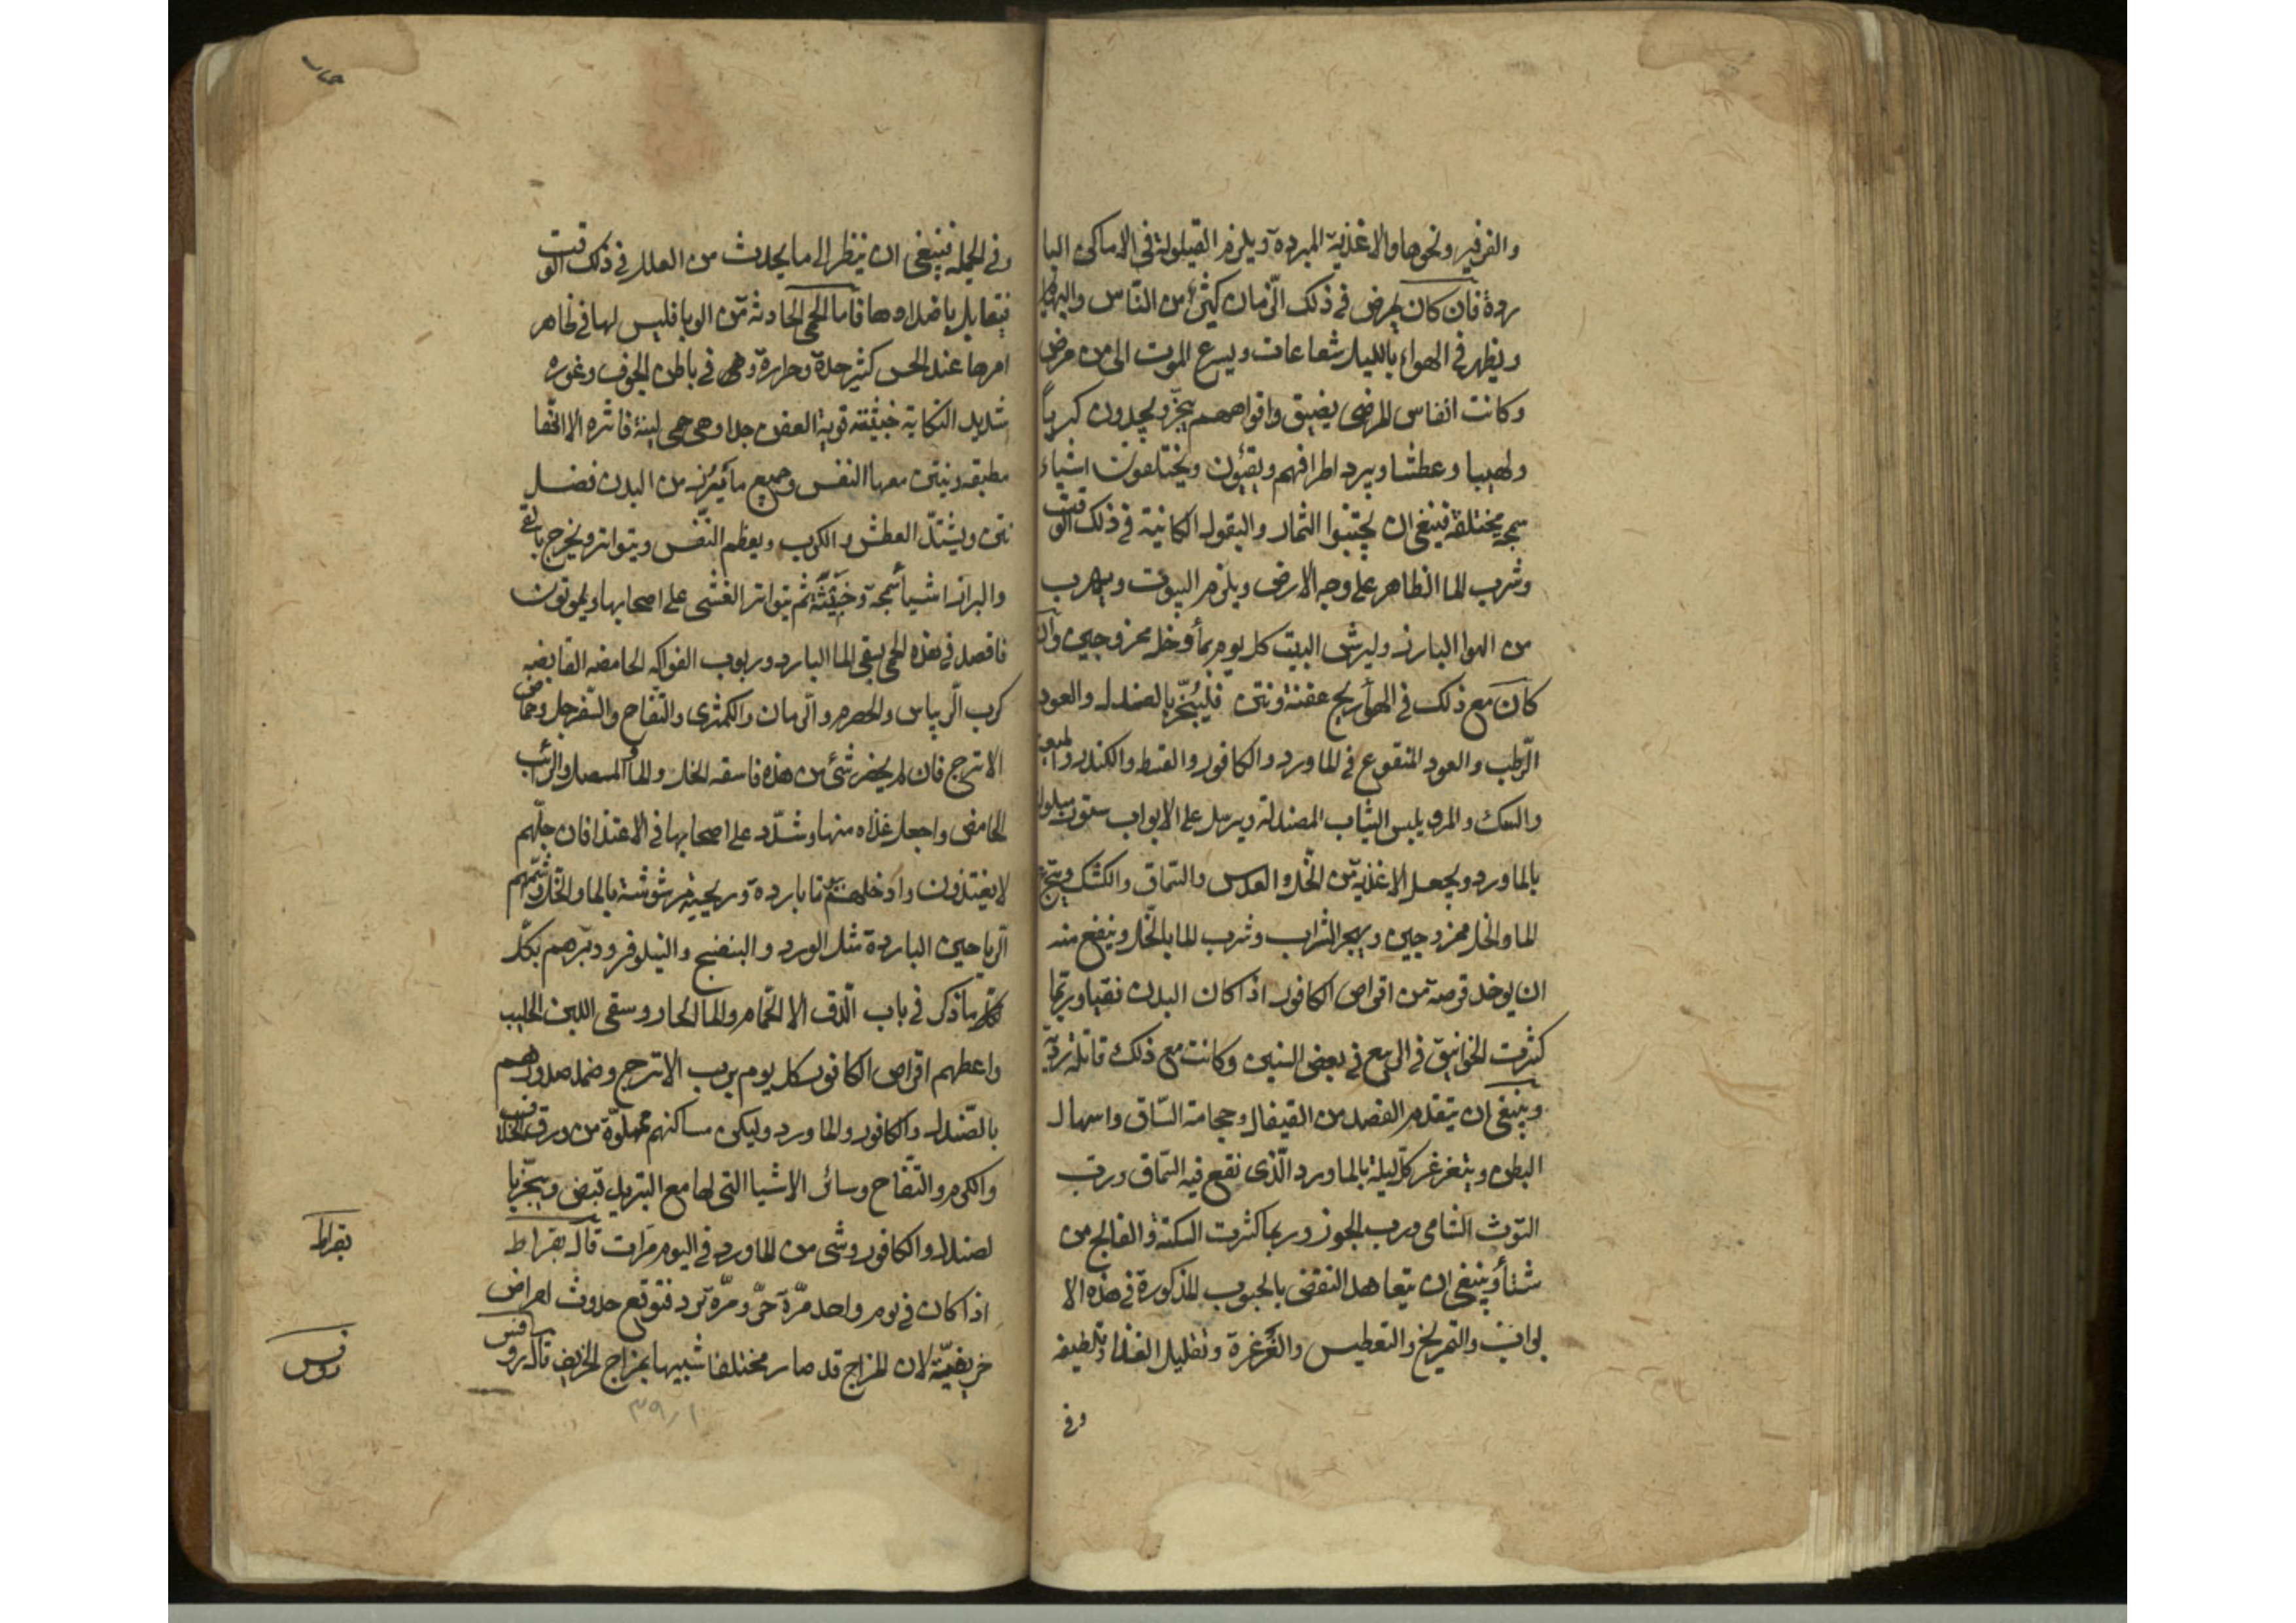 والفرفير ونحوها والاغذية المبردة ويلزم القيلولة في الاماكن البا
ردة فان كان يعرض في ذلك الزمان كثير من الناس والبهائم
ويظهر في الهواء بالليل شعاعات ويسرع الموت الى من مرض
وكانت انفاس المرضى يضيق وافواههم يبخر ويجدون كرباً
ولهيبا وعطشا ويبرد اطرافهم ويقيئون ويختلفون اشياء
سمجه مختلفة فينبغي ان يجتنبوا الثمار والبقول الكاينة في ذلك الوقت
وشرب الما الظاهر على وجه الارض ويلزم البيوت ويهرب
من الهوا البارز وليرش البيت كل يوم بمأ وخل ممزوجين وان
كان مع ذلك في الهوأ ريح عفنة ونتن فليبخر بالصندل والعود
الرطب والعود المنقوع في الماورد والكافور والقسط والكندر والميعه
والسك والمر ويلبس الثياب المصندلة ويرسل على الابواب ستور مبلوله
بالماورد ويجعل الاغذية من الخل والعدس والسماق والكشك ويتجرع
الما والخل ممزوجين ويهجر الشراب وشرب الما بالخل وينفع منه
ان يوخذ قرصة من اقراص الكافور اذا كان البدن نقيا وربما
كثرت الخوانيق في الربيع في بعض السنين وكانت مع ذلك قاتلة ردية
وينبغي ان يتقدم الفصد من القيفال وحجامة الساق واسهال
البطن ويتغرغر كل ليلة بالماورد الذى نقع فيه السماق ورب
التوث الشامى ورب الجوز وربما كثرت السكتة والفالج من
شتأ وينبغي ان يتعاهد النفض بالحبوب المذكورة في هذه الا
بواب والتمريخ والتعطيس والغرغرة وتقليل الغذا وتلطيفه
وفي
وفي الجمله فينبغي ان ينظر الى ما يحدث من العلل في ذلك الوقت
فيقابل باضدادها فاما الحمى الحادثة من الوبا فليس لها في ظاهر
امرها عند الحس كثير حدة وحرارة وهى في باطن الجوف وغوره
شديد النكاية خبيثته قوية العفن جدا وهى حمى لينة فاتره الا انها
مطبقه وينتن معها النفس وجميع ما يبرز من البدن فضل
نتن ويشتد العطش والكرب ويعظم النفس ويتواتر ويخرج بالقى
والبراز اشيأ سمجة وخبيثة ثم يتواتر الغشى على اصحابها ويموتون
فاقصد في هذه الحمى بسقى الما البارد وربوب الفواكه الحامضه القابضه
كرب الريباس والحصرم والرمان والكمثرى والتفاح والسفرجل وحماض
الاترج فان لم يحضر شئ من هذه فاسقه الخل والمأ المصل والرائب
الحامض واجعل غذاه منها وشدد على اصحابها في الاغتذا فان جلهم
لا يغتذون وادخلهم بيوتا باردة وريحية مرشوشة بالما والخل وشممهم
الرياحين الباردة مثل الورد والبنفسج والنيلوفر ودبرهم بكل
ما ذكر في باب الدق الا الحمام والما الحار وسقى اللبن الحليب
واعطهم اقراص الكافور كل يوم برب الاترج وضمد صدورهم
بالصندل والكافور والماورد وليكن مساكنهم مملوة من ورق الخلاف
والكرم والتفاح وسائر الاشيا التى لها مع التبريد قبض ويبخر با
لصندل والكافور وشى من الماورد في اليوم مرات قال بقراط
اذا كان في يوم واحد مرة حر ومرة برد فتوقع حدوث امراض
خريفية لان المزاج قد صار مختلفا شبيها بمزاج الخريف قال روفس
بقراط
روفس